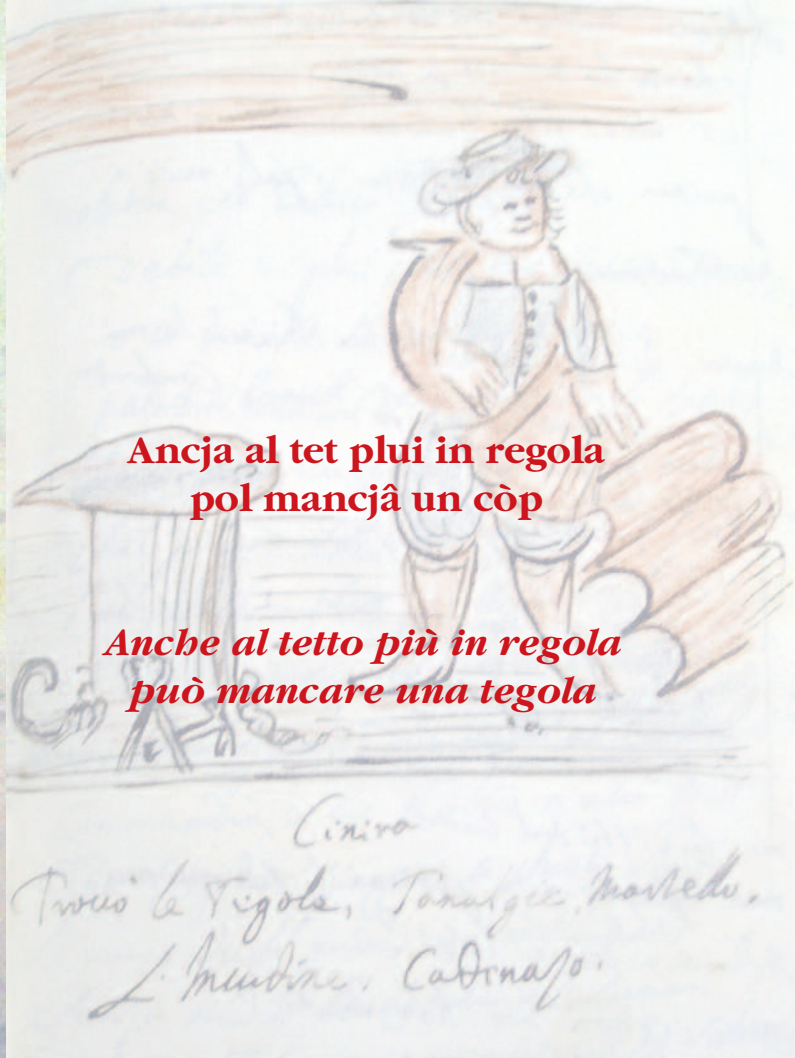 Ancja al tet plui in regola
pol mancjâ un còp
Anche al tetto più in regola
può mancare una tegola
Cinira
Trovò la Tegola, Tanalgie, Martello,
L'Incudine,